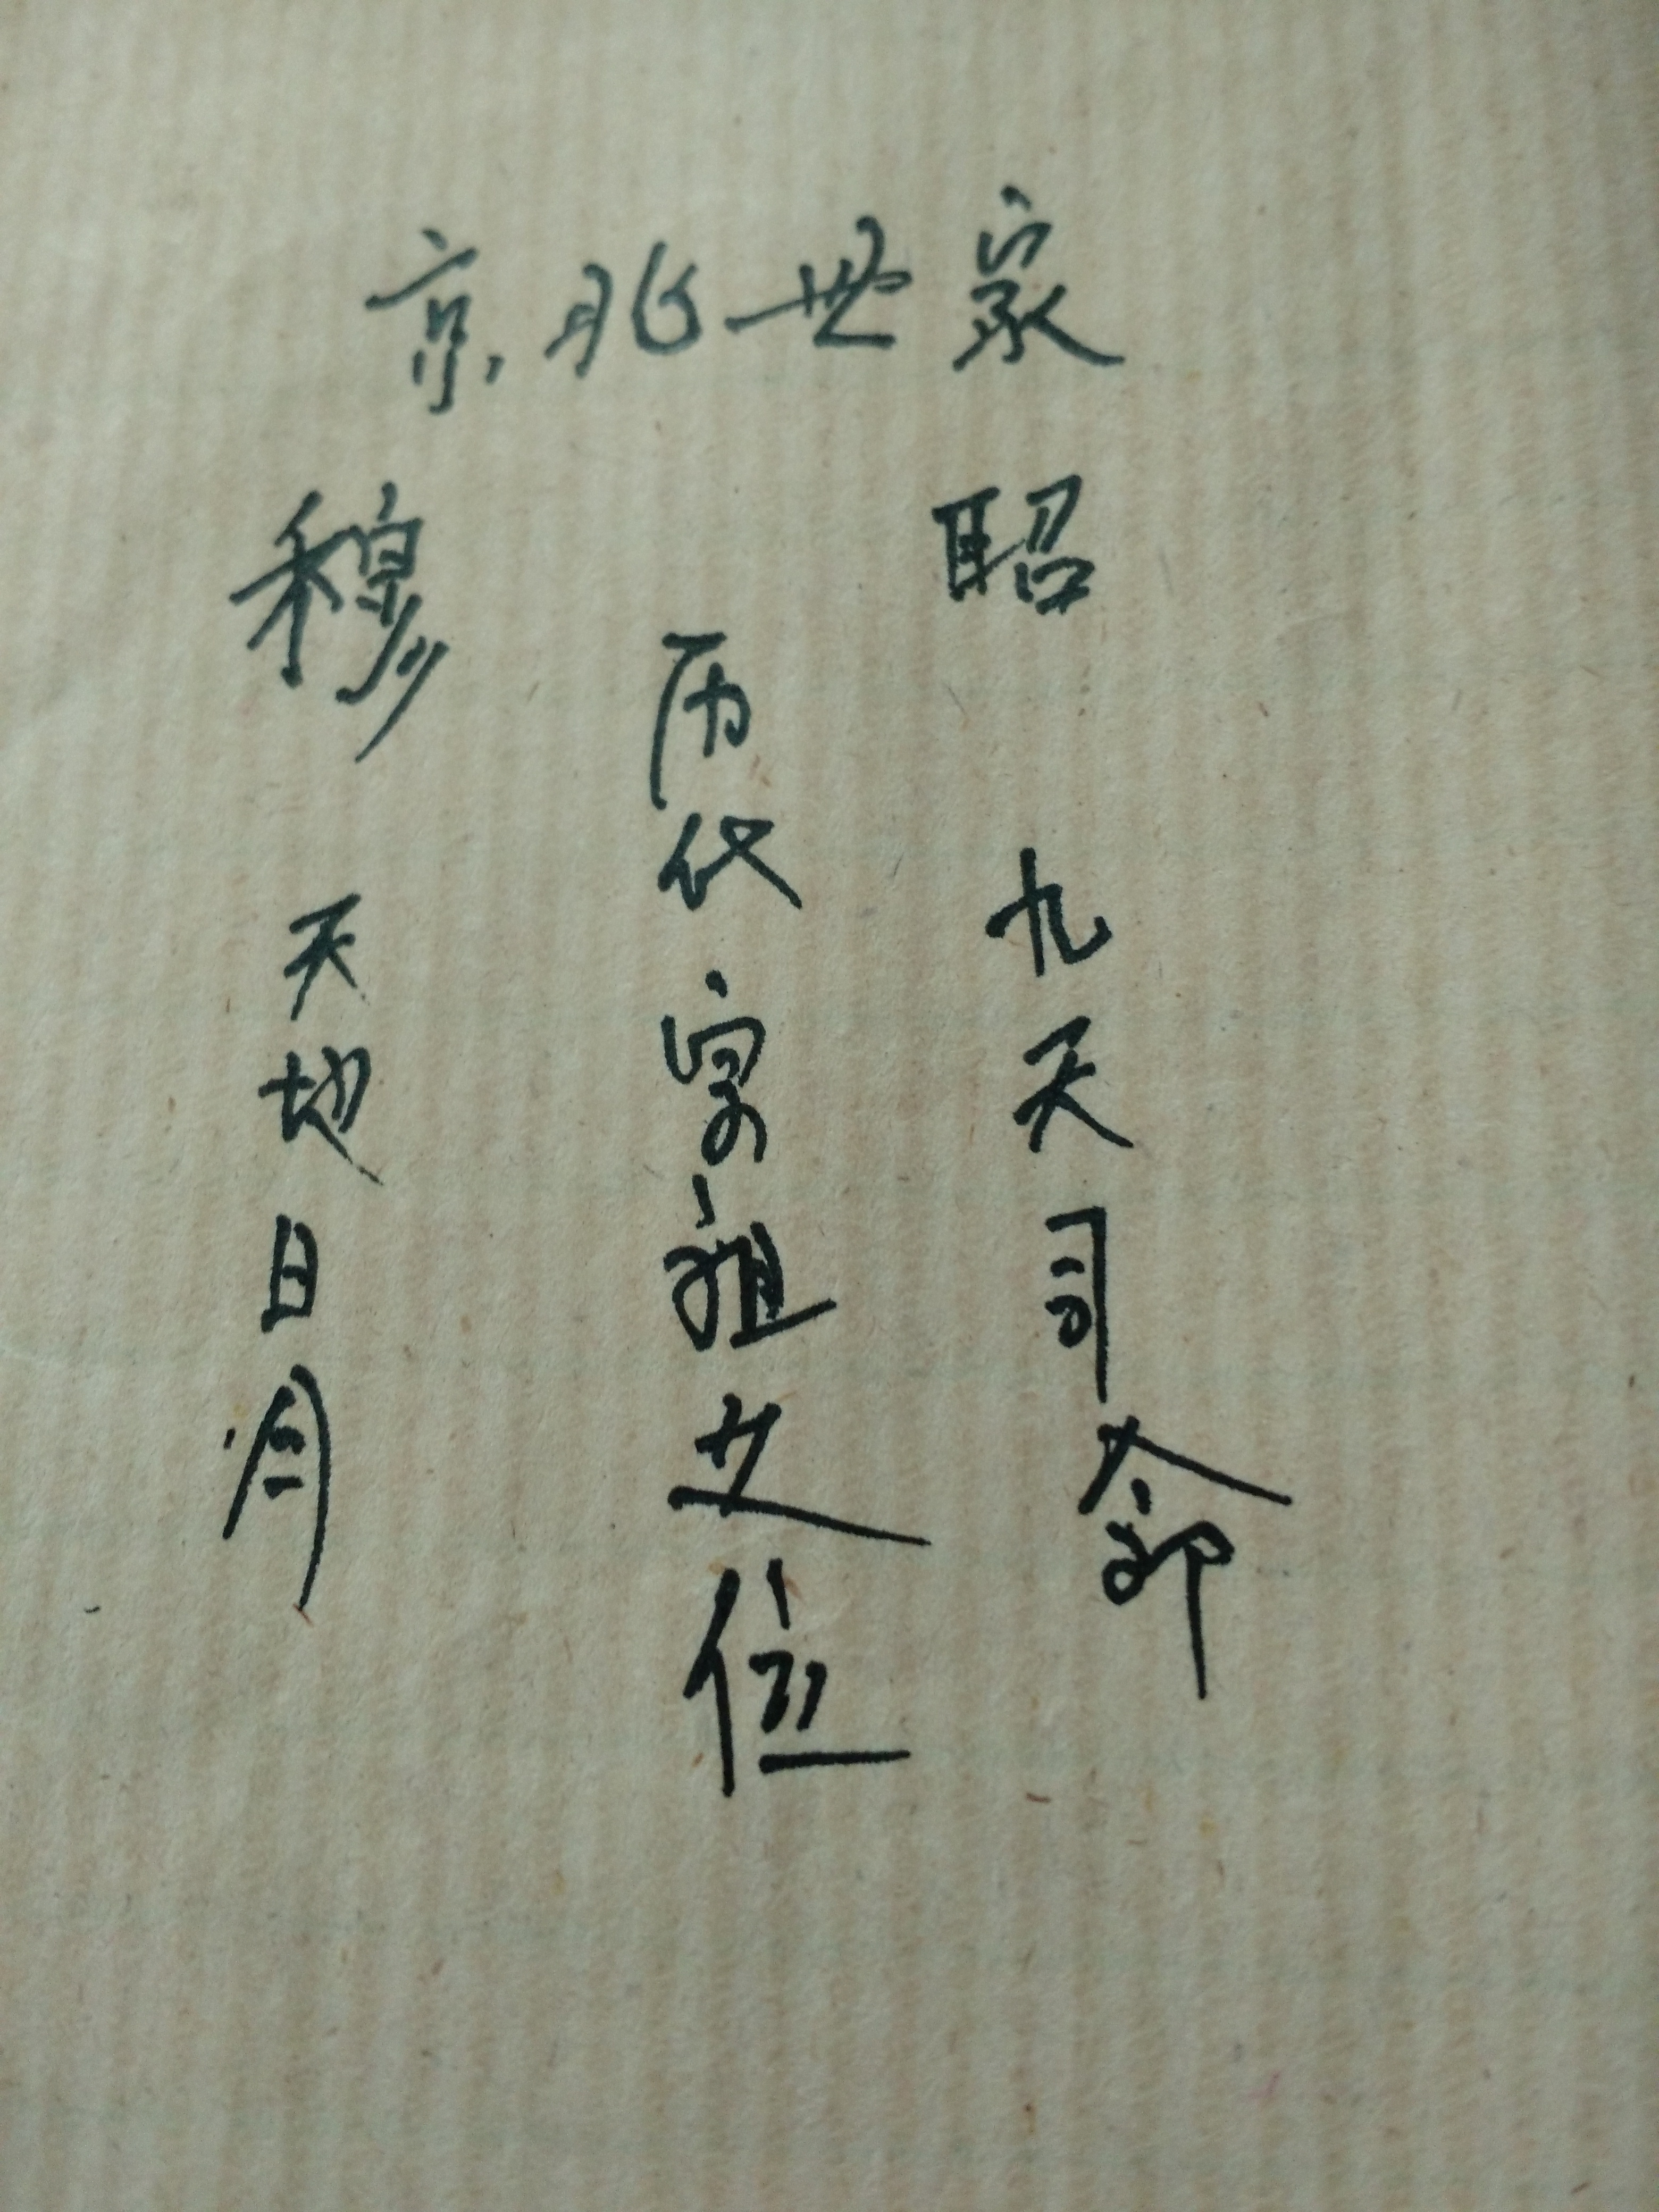 京兆世家
昭
九天司命
历代宗祖之位
穆
天地日月